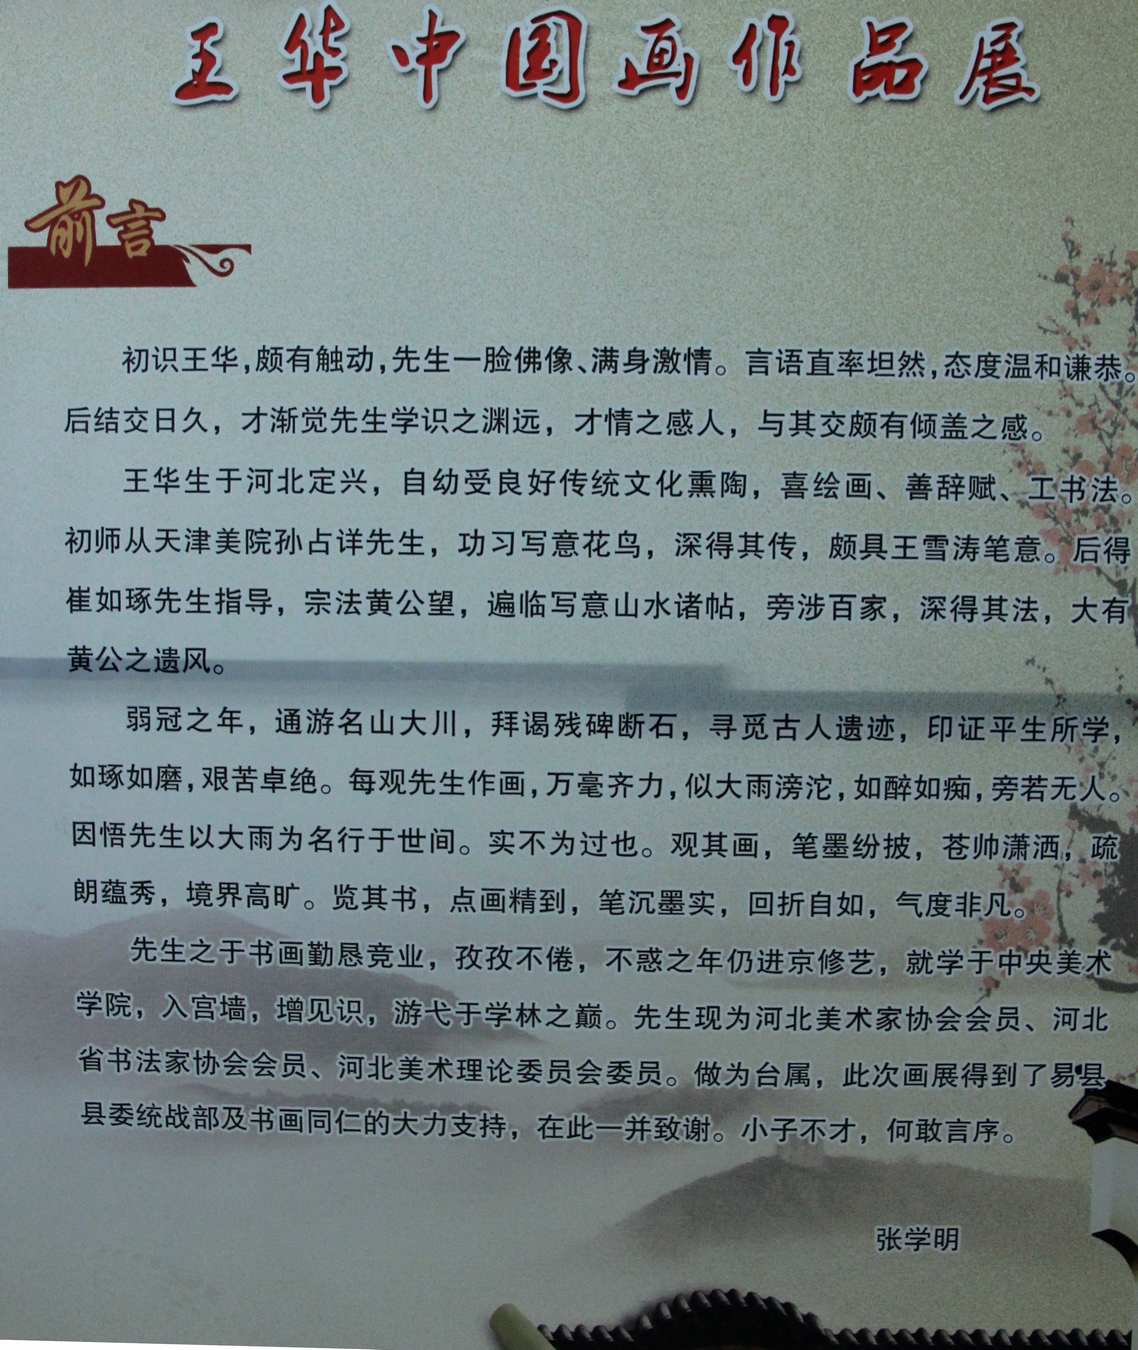 王华中国画作品展
前言
初识王华,颇有触动,先生一脸佛像、满身激情。言语直率坦然,态度温和谦恭。
后结交日久，才渐觉先生学识之渊远，才情之感人，与其交颇有倾盖之感。
王华生于河北定兴，自幼受良好传统文化熏陶，喜绘画、善辞赋、工书法。
初师从天津美院孙占详先生，功习写意花鸟，深得其传，颇具王雪涛笔意。后得
崔如琢先生指导，宗法黄公望，遍临写意山水诸帖，旁涉百家，深得其法，大有
黄公之遗风。
弱冠之年，通游名山大川，拜谒残碑断石，寻觅古人遗迹，印证平生所学，
如琢如磨,艰苦卓绝。每观先生作画,万毫齐力,似大雨滂沱,如醉如痴,旁若无人。
因悟先生以大雨为名行于世间。实不为过也。观其画，笔墨纷披，苍帅潇洒，疏
朗蕴秀，境界高旷。览其书，点画精到，笔沉墨实，回折自如，气度非凡。
先生之于书画勤恳竞业，孜孜不倦，不惑之年仍进京修艺，就学于中央美术
学院，入宫墙，增见识，游弋于学林之巅。先生现为河北美术家协会会员、河北
省书法家协会会员、河北美术理论委员会委员。做为台属，此次画展得到了易县
县委统战部及书画同仁的大力支持，在此一并致谢。小子不才，何敢言序。
张学明